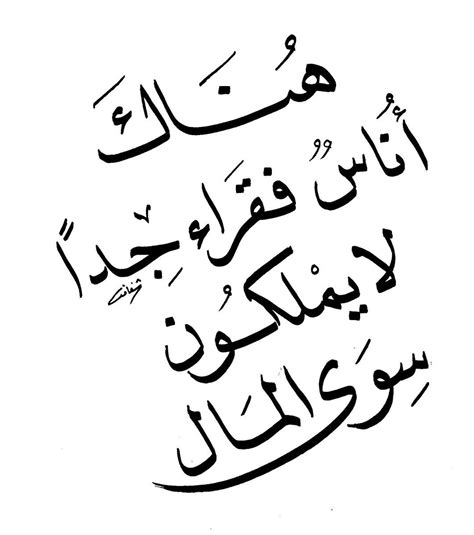 هُنَاكَ
أُنَاسٌ فقَراء جِداً
لا يمْلكُونَ
سِوَى المَال